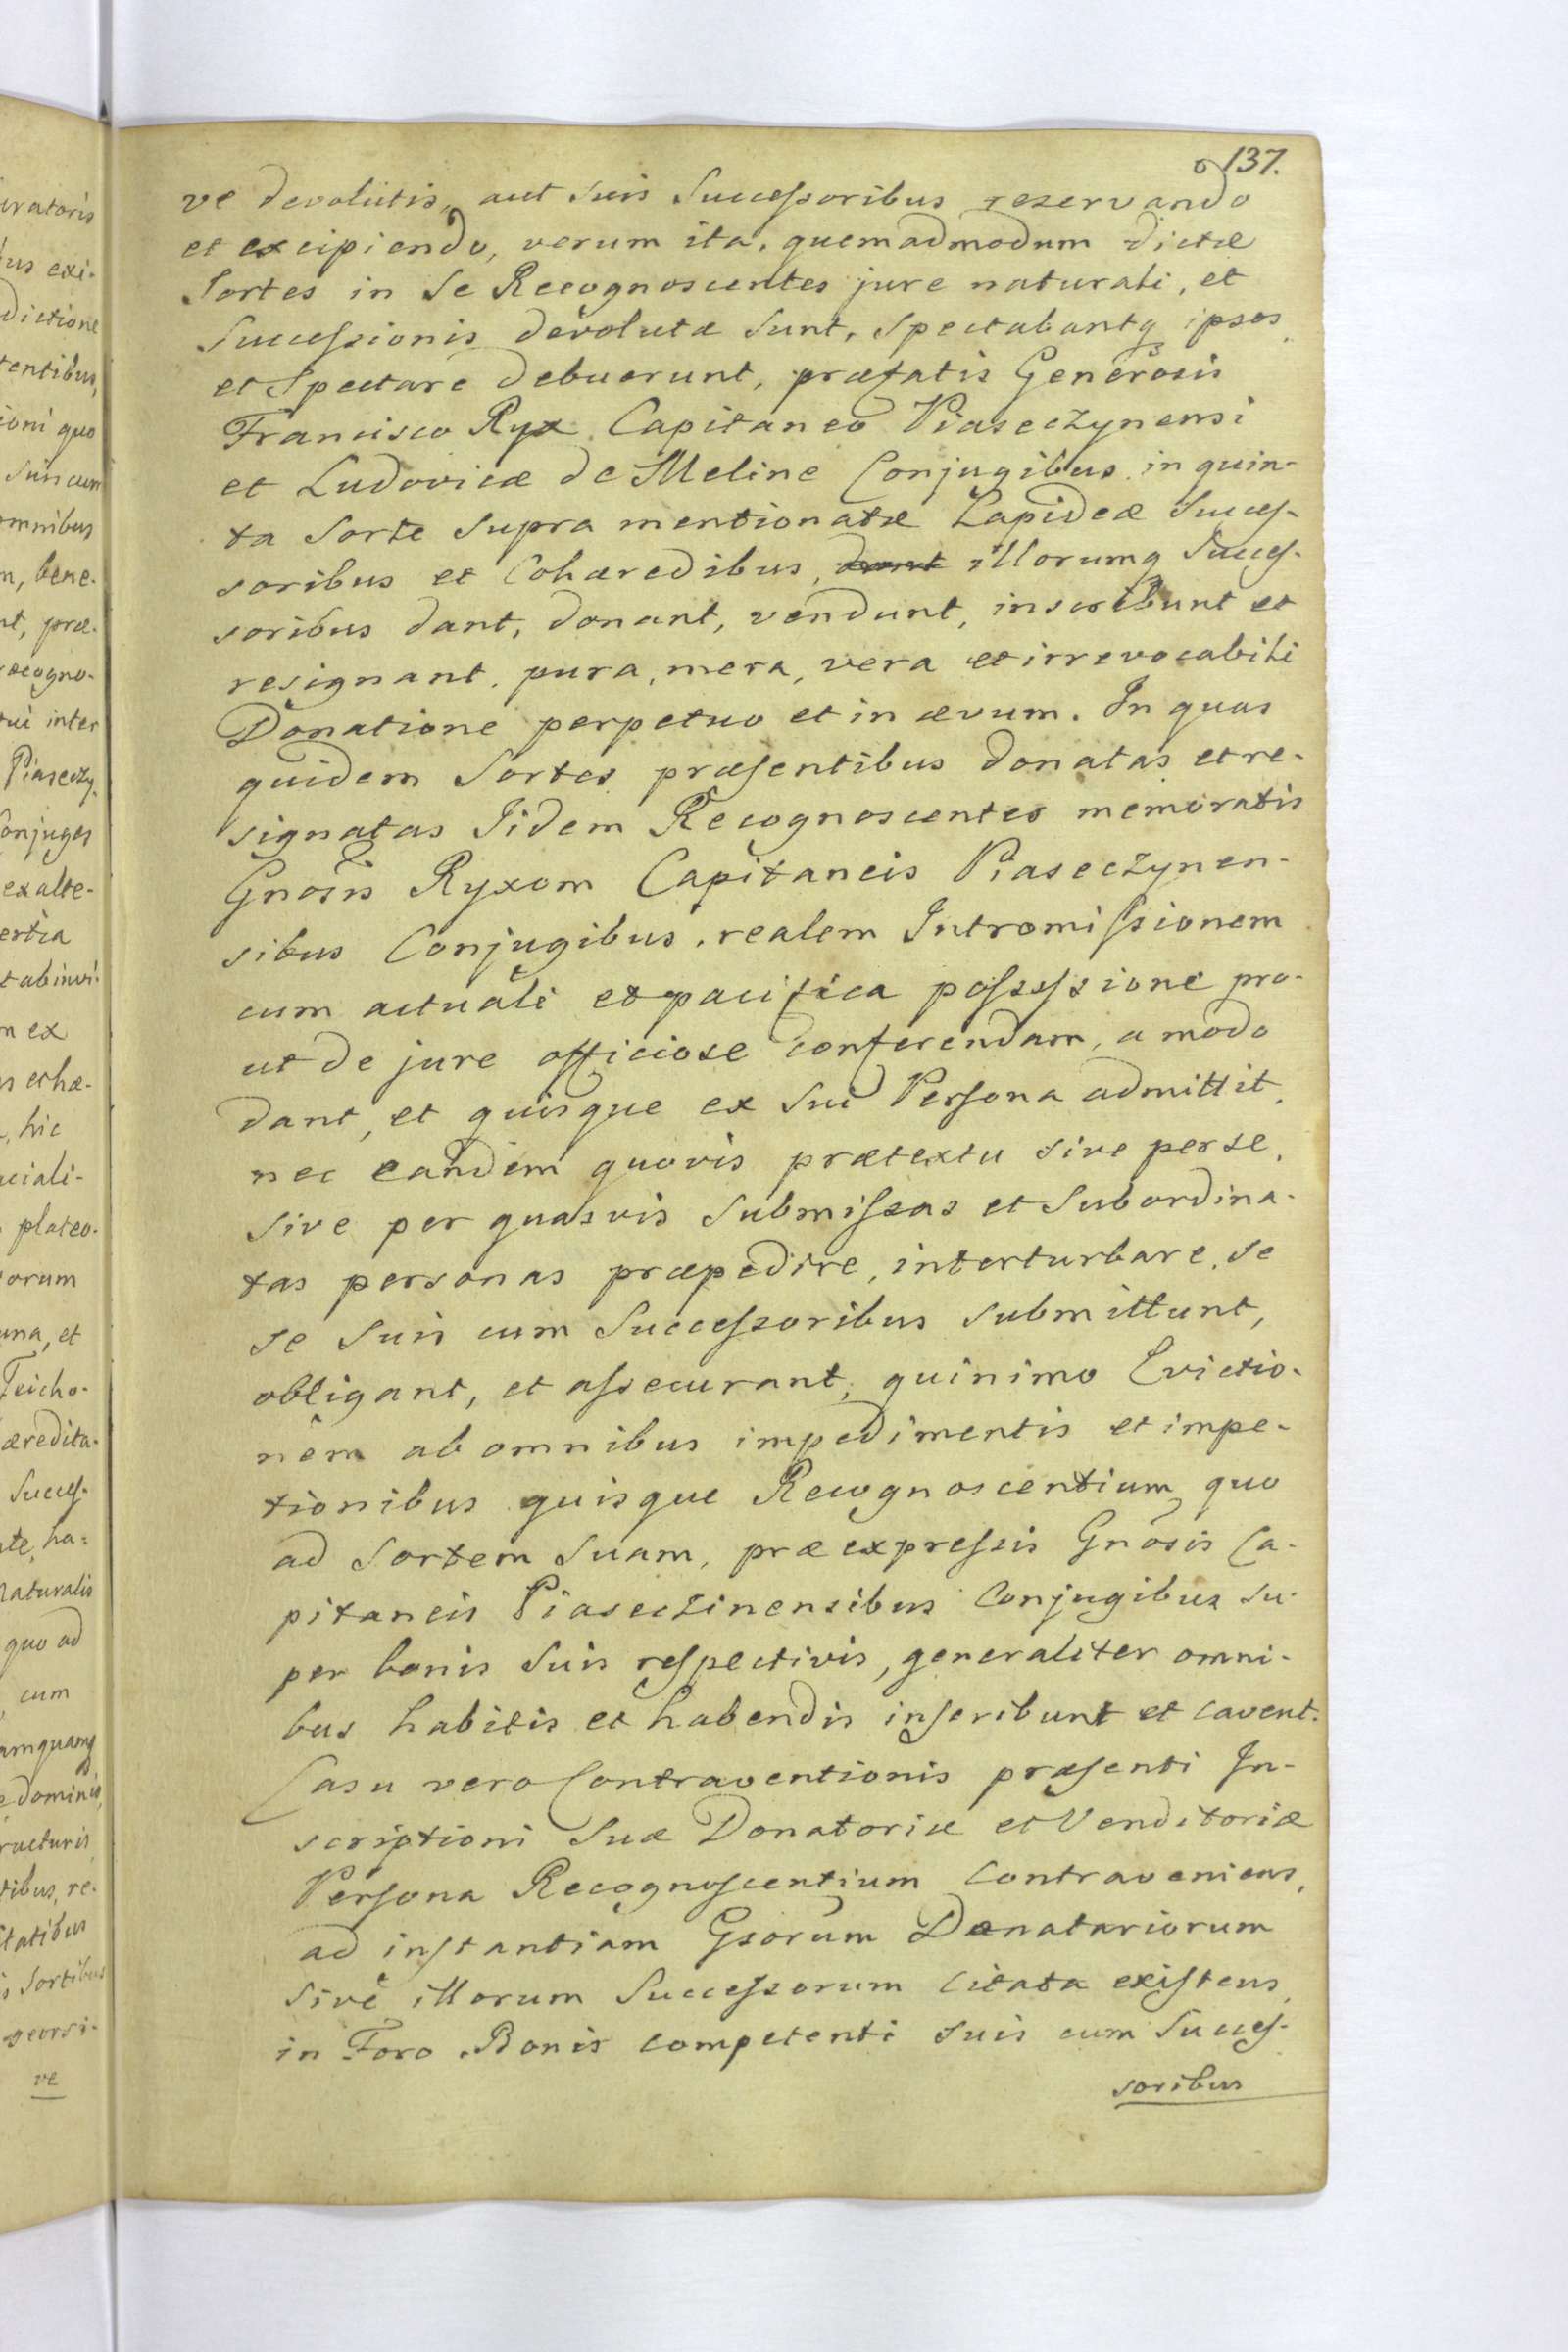 137.
ve devolutis, aut suis Successoribus reservando
et excipiendo, verum ita, quemadmodum dictæ
Sortes in Se Recognoscentes jure naturali, et
Successionis devolutæ sunt, spectabantq ipsos
et Spectare debuerunt, præfatis Generosis
Francisco Ryx Capitaneo Piaseczynensi
et Ludovicæ de Meline Conjugibus in quin-
ta Sorte supra mentionatæ Lapideæ Succes-
soribus et Cohæredibus, illorumq Succes-
soribus dant, donant, vendunt, inscribunt et
resignant, pura, mera, vera et irrevocabili
Donatione perpetuo et in ævum. In quas
quidem Sortes præsentibus donatas et re-
signatas Iidem Recognoscentes memoratis
Gnosis Ryxom Capitaneis Piaseczynen-
sibus Conjugibus, realem Intromissionem
cum actuali et pacifica possessione pro-
ut de jure officiose conferendam, a modo
dant, et quisque ex sui Persona admittit,
nec eandem quovis prætextu sive per se,
sive per quasvis submissas et subordina-
tas personas præpedire, interturbare, se
se suis cum Successoribus submittunt,
obligant, et assecurant, quinimo Evictio-
nem ab omnibus impedimentis et impe-
tionibus quisque Recognoscentium quo
ad Sortem suam, præexpressis Gnosis Ca-
pitaneis Piaseczinensibus Conjugibus su-
per bonis suis respectivis, generaliter omni-
bus habitis et habendis inscribunt et cavent.
Casu vero Contraventionis præsenti In-
scriptioni suæ Donatoriæ et Venditoriæ
Persona Recognoscentium Contraveniens,
ad instantiam Gsorum Donatariorum
sive illorum Successorum Citata existens
in Foro Bonis competenti suis cum Succes-
soribus